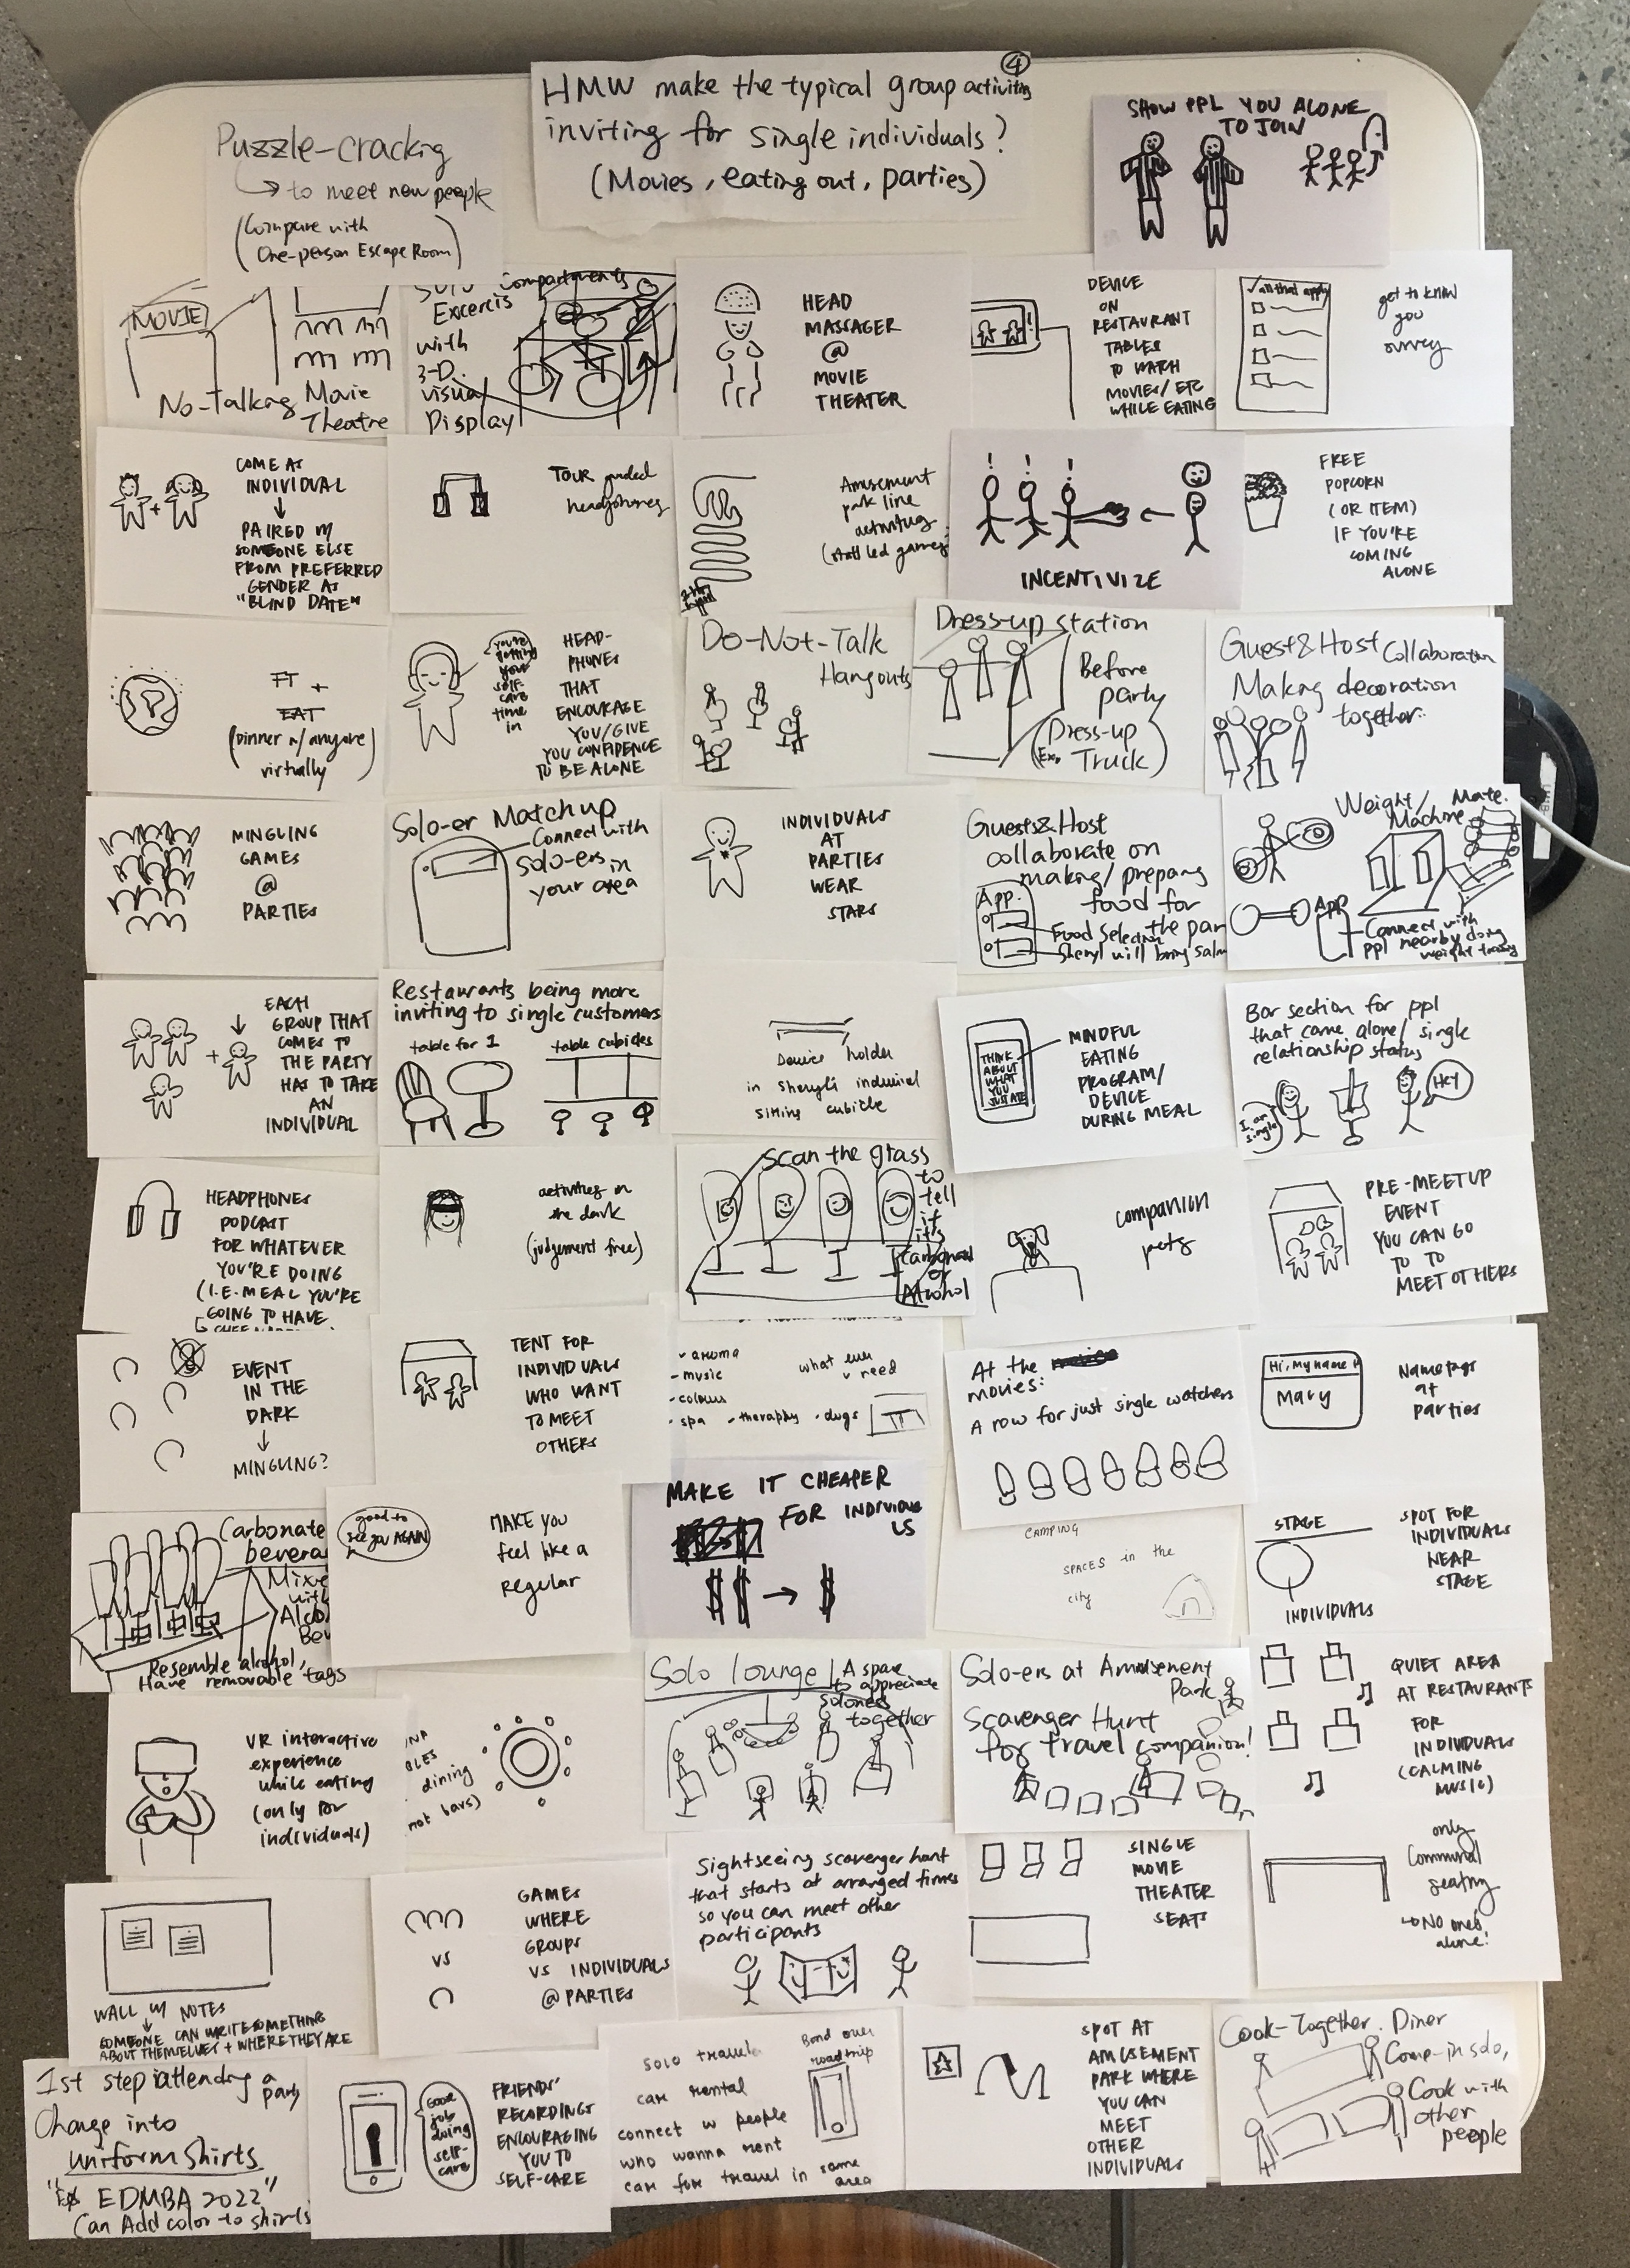 ④
HMW make the typical group activities
inviting for single individuals?
(Movies, eating out, parties)
Puzzle-cracking
→ to meet new people
(Compare with
One-person Escape Room)
SHOW PPL YOU ALONE
TO JOIN
MOVIE
No-talking Movie
Theatre
Solo Compartments
Excercis
with
3-D.
visual
Display
HEAD
MASSAGER
@
MOVIE
THEATER
DEVICE
ON
RESTAURANT
TABLES
TO WATCH
MOVIES/ETC
WHILE EATING
✓ all that apply
get to know
you
survey
COME AS
INDIVIDUAL
↓
PAIRED W/
SOMEONE ELSE
FROM PREFERRED
GENDER AS
"BLIND DATE"
TOUR guided
headphones
Amusement
park line
activities
(staff led games
INCENTIVIZE
FREE
POPCORN
(OR ITEM)
IF YOU'RE
COMING
ALONE
FT +
EAT
(Dinner w/ anyone)
virtually
you're
getting
your
self-
care
time
in
HEAD-
PHONES
THAT
ENCOURAGE
YOU/GIVE
YOU CONFIDENCE
TO BE ALONE
Do-Not-Talk
Hangouts
Dress-up station
Before
party
(Ex. Dress-up
Truck)
Guest&Host Collaboration
Making decoration
together
MINGLING
GAMES
@
PARTIES
Solo-er Matchup
Connect with
solo-ers in
your area
INDIVIDUALS
AT
PARTIES
WEAR
STARS
Guests&Host
collaborate on
making/preparing
food for
the par
App.
Food Selection
Sheryl will bring salm
Weight/
Machine
Mate.
APP
Connect with
ppl nearby doing
weight training
EACH
GROUP THAT
COMES TO
THE PARTY
HAS TO TAKE
AN
INDIVIDUAL
Restaurants being more
inviting to single customers
table for 1
table cubicles
Device holder
in Sheryl's individual
sitting cubicle
THINK
ABOUT
WHAT
YOU
JUST ATE
MINDFUL
EATING
PROGRAM/
DEVICE
DURING MEAL
Bar section for ppl
that came alone/single
relationship status
I am
single
Hey
HEADPHONES
PODCAST
FOR WHATEVER
YOU'RE DOING
(I.E. MEAL YOU'RE
GOING TO HAVE
activities in
the dark
(judgement free)
Scan the glass
to
tell
if
it's
Carbonated
or
Alcohol
companion
pets
PRE-MEETUP
EVENT
YOU CAN GO
TO TO
MEET OTHERS
EVENT
IN THE
DARK
↓
MINGLING?
TENT FOR
INDIVIDUALS
WHO WANT
TO MEET
OTHERS
- aroma
- music
- colours
- spa - theraphy - dogs
what ever
u need
At the
movies:
A row for just single watchers
Hi, My name is
Mary
Name tags
at
parties
Carbonate
bevera
Mixe
with
Alco
Bev
Resemble alcohol,
Have removable tags
good to
see you AGAIN
MAKE YOU
feel like a
regular
MAKE IT CHEAPER
FOR INDIVIDUALS
$$ → $
CAMPING
SPACES in the
city
STAGE
INDIVIDUALS
SPOT FOR
INDIVIDUALS
NEAR
STAGE
VR interactive
experience
while eating
(only for
individuals)
dining
not bars)
Solo lounge
A space
to appreciate
soloness
together
Solo-ers at Amusement
Park
Scavenger Hunt
for travel companion!
QUIET AREA
AT RESTAURANTS
FOR
INDIVIDUALS
(CALMING
MUSIC)
WALL W/ NOTES
↓
SOMEONE CAN WRITE SOMETHING
ABOUT THEMSELVES + WHERE THEY ARE
GAMES
WHERE
GROUPS
VS INDIVIDUALS
@ PARTIES
VS
Sightseeing scavenger hunt
that starts at arranged times
so you can meet other
participants
SINGLE
MOVIE
THEATER
SEATS
only
Communal
seating
→ NO one's
alone!
1st step in attending a
party
Change into
uniform shirts
"Ex EDMBA 2022"
Can Add color to shirts
Good
job
doing
self-
care
FRIENDS'
RECORDINGS
ENCOURAGING
YOU TO
SELF-CARE
solo travel
car rental
connect w people
who wanna rent
car for travel in same
area
Bond over
roadtrip
SPOT AT
AMUSEMENT
PARK WHERE
YOU CAN
MEET
OTHER
INDIVIDUALS
Cook-Together. Diner
Come-in solo,
Cook with
other
people